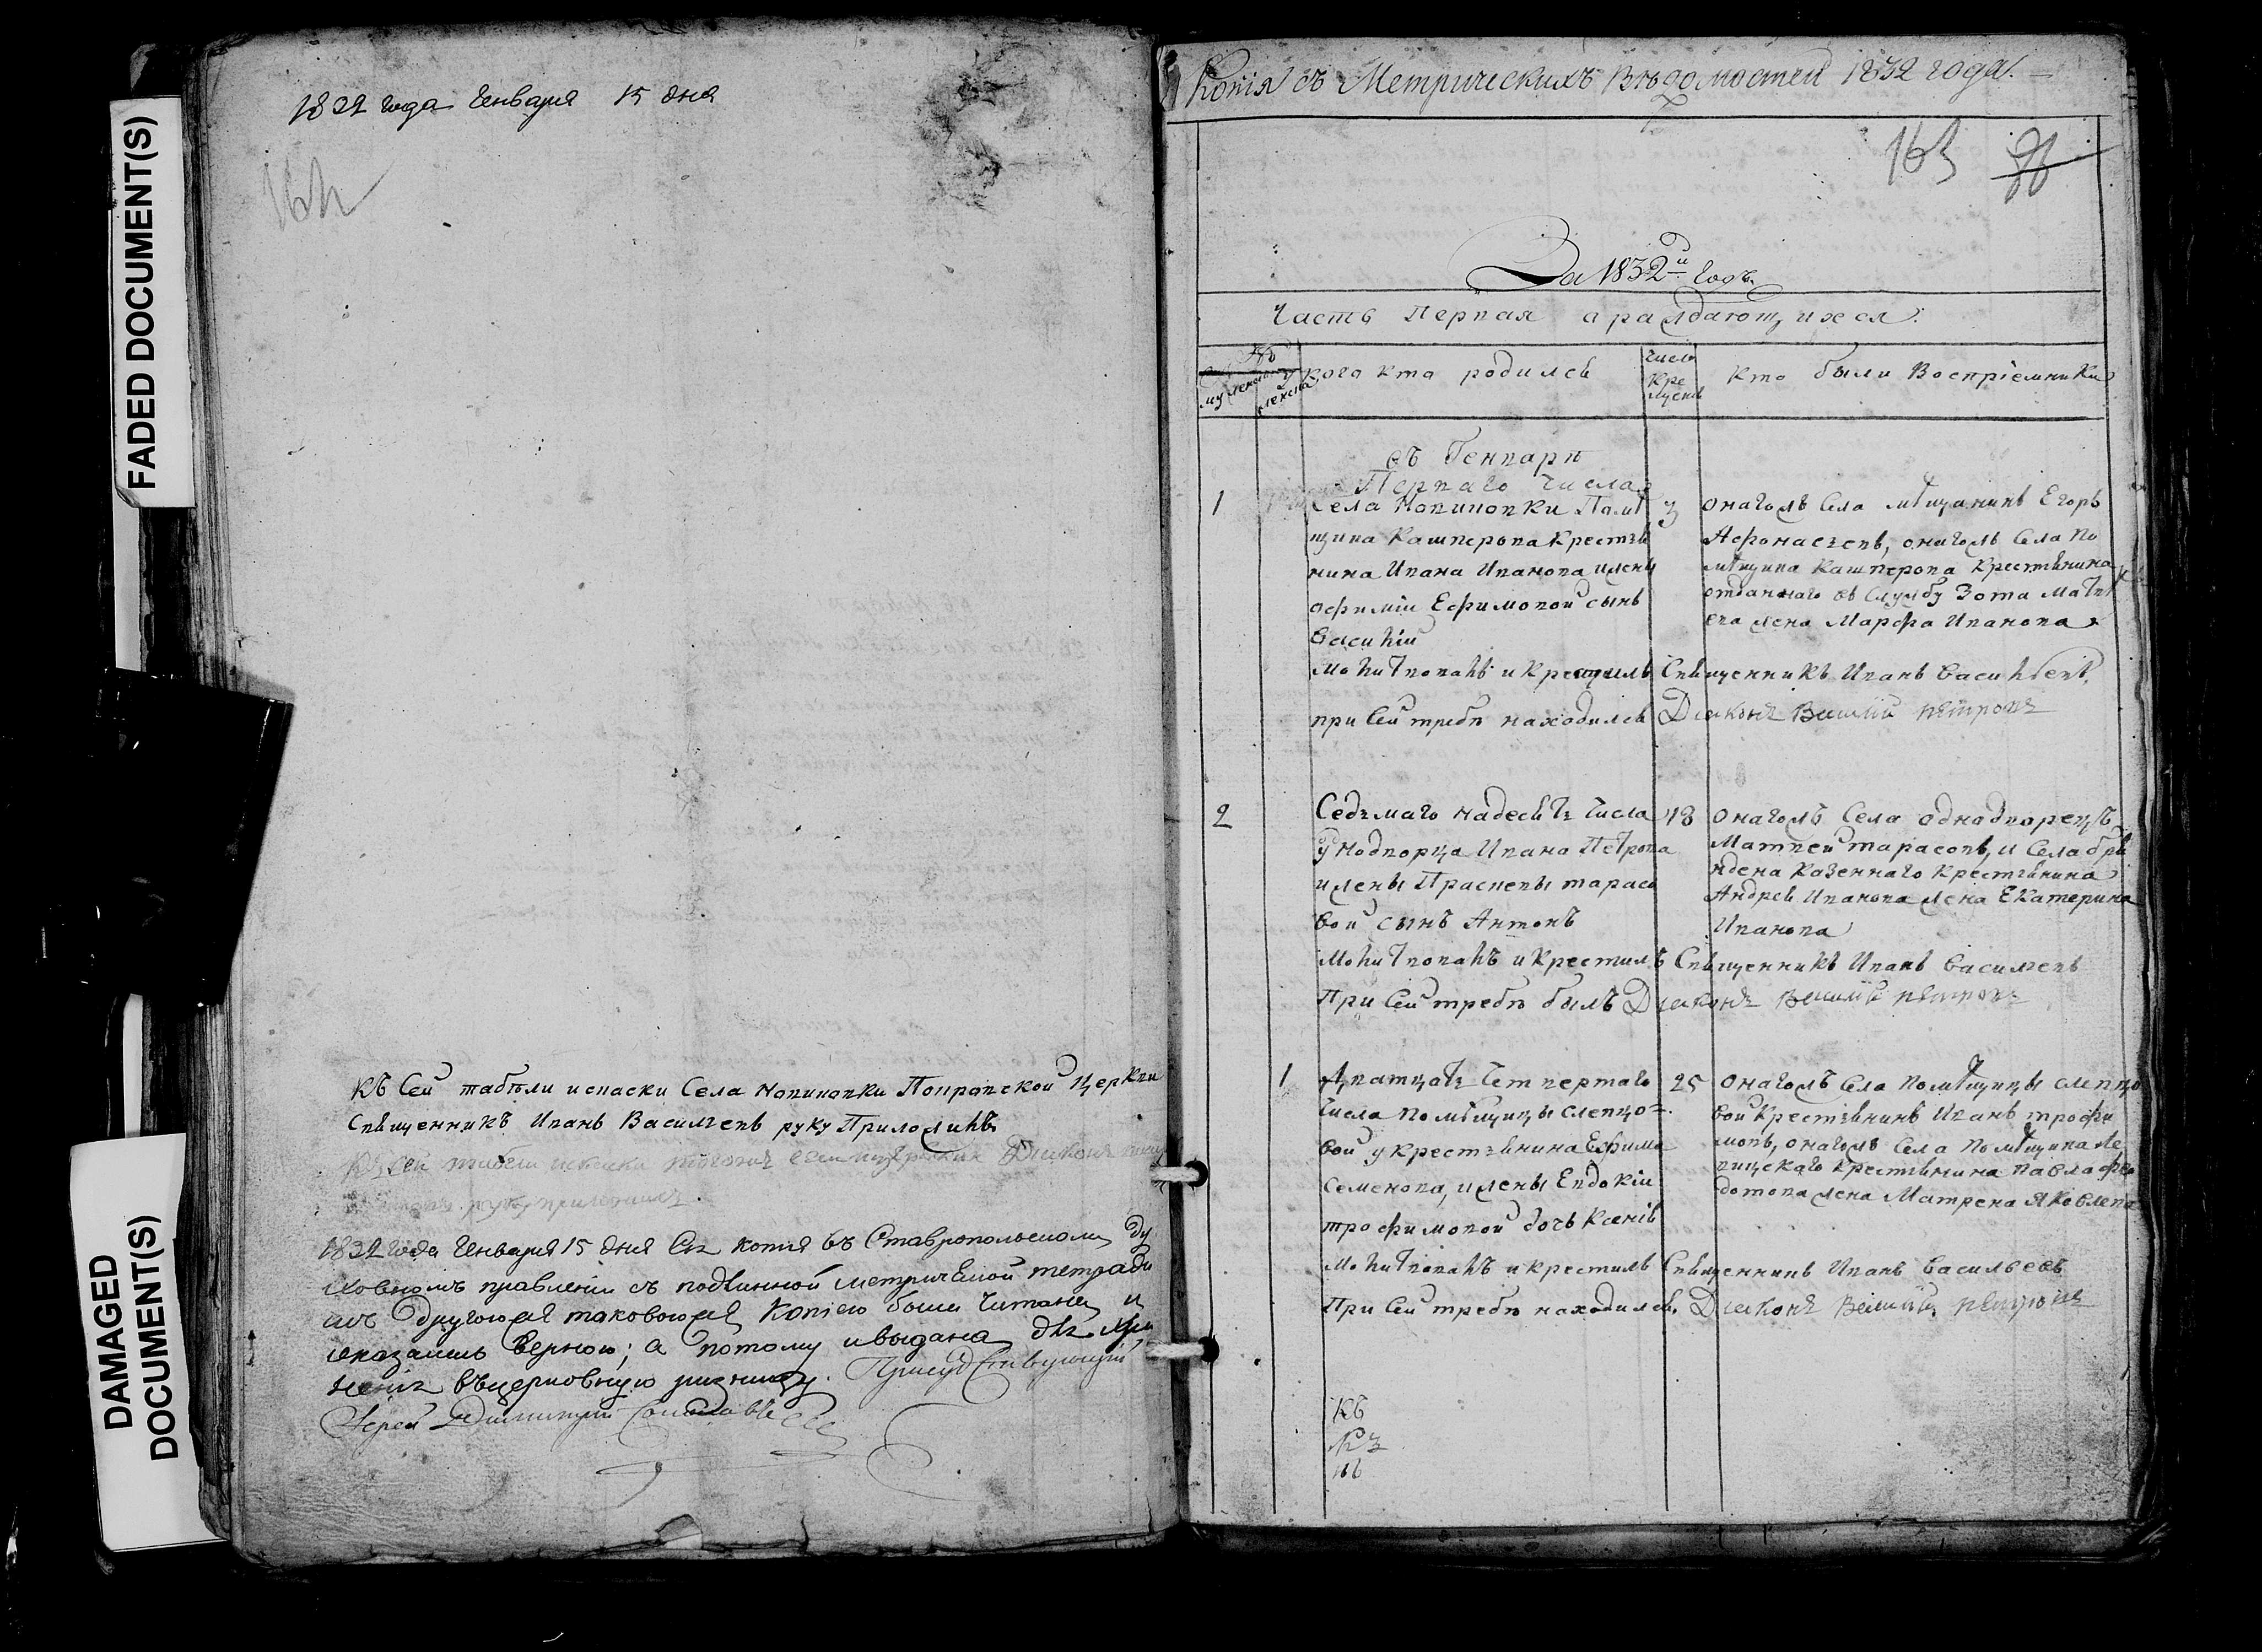 FADED DOCUMENT(S)
DAMAGED
DOCUMENT(S)
1832 года Генваря 15 дня
164
Къ сей табели и спаски Села Новиновки Покровской Церкви
Священникъ Иванъ Васильевъ руку Приложилъ
Къ сей табели Дьяконъ
руку приложилъ.
1832 года Генваря 15 дня Сія копія въ Ставропольскомъ ду
ховномъ правленіи съ подлинной метрической тетради
и съ другою таковою копіею была читана и
оказалась верною; а потому и выдана для хра
ненія въ церковную ризницу. Присудствующій
Іерей Димитрій
Копія съ Метрическихъ Вѣдомостей 1832 года.
163
За 1832й годъ.
Часть Первая о раждающихся.
№
мужеска женска
У кого кто родился
число
Кре
щенія
Кто были Воспріемники
въ Генварѣ
Перваго числа
1
Села Новиновки Помѣ
щика Кашперова Крестья
нина Ивана Иванова и жены
Афиміи Ефимовой сынъ
Василій
3
онагожъ Села мѣщанинъ Егоръ
Афонасьевъ, онагожъ Села По
мѣщика Кашперова Крестьянина
отданнаго въ Службу Зота Матве
ева жена Марфа Иванова
Молитвовалъ и крестилъ Священникъ Иванъ Васильевъ,
при Сей требѣ находился Дьяконъ Василій Петровъ
2
Седьмаго надесять числа
У нодворца Ивана Петрова
и жены Прасковьи Тарасо
вой сынъ Антонъ
18
онагожъ Села однодворецъ
Матвей Тарасовъ, и Села
Казеннаго Крестьянина
Андрея Иванова жена Екатерина
Иванова
Молитвовалъ и Крестилъ Священникъ Иванъ Васильевъ
При Сей требѣ былъ Дьяконъ Василій Петровъ
1
Дватцать Четвертаго
числа помѣщицы Слепцо=
вой у крестьянина Ефима
Семенова, и жены Евдокіи
Трофимовой дочь Ксенія
25
онагожъ Села помѣщицы Слепцо
вой Крестьянинъ Иванъ Трофи
мовъ, онагожъ Села Помѣщика Ле
вицскаго Крестьянина Павла Фе
дотова жена Матрена Яковлева
Молитвовалъ и крестилъ Священникъ Иванъ Васильевъ
При Сей требѣ находился. Дьяконъ Василій Петровъ
Къ
№ 3